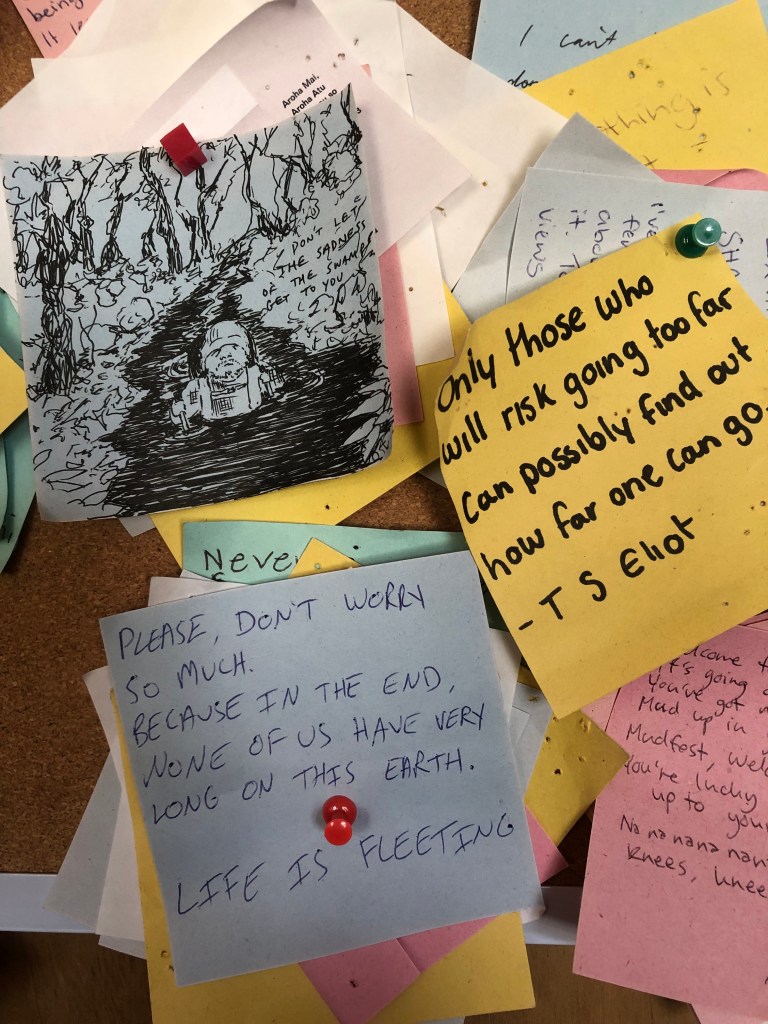 being
It
I can't
Aroha Mai,
Aroha Atu
thing is
I've
it. T
views
DON'T LET
THE SADNESS
OF THE SWAMPS
GET TO YOU
Only those who
will risk going too far
can possibly find out
how far one can go.
- T S Eliot
Neve
PLEASE, DON'T WORRY
SO MUCH.
BECAUSE IN THE END,
NONE OF US HAVE VERY
LONG ON THIS EARTH.
LIFE IS FLEETING
lcome t
it's going
You've got
Mud up in
Mudfest, Welc
You're lucky
up to your
Na na na na nan
knees, knee